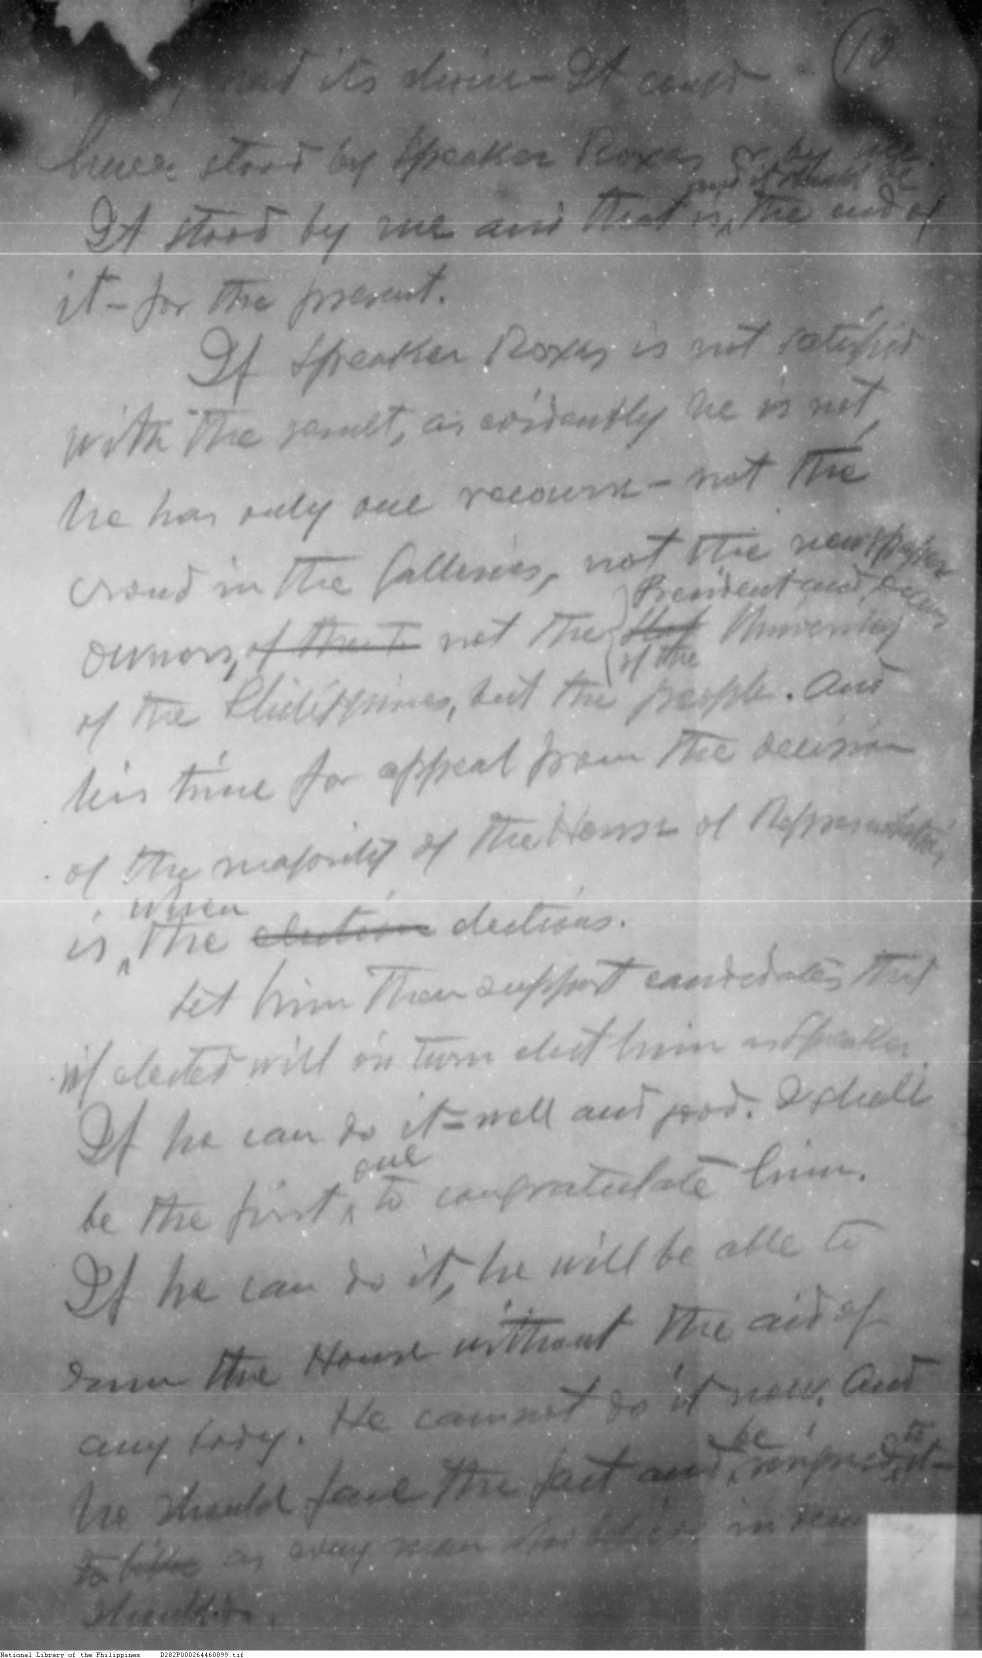 10
its choice - It could
have stood by Speaker Roxas or by me.
and it should be
It stood by me and that is, the end of
it - for the present.
If Speaker Roxas is not satisfied
with the result, as evidently he is not,
he has only one recourse - not the
crowd in the Galleries, not the newspaper
President and Deans
owners, of the not the Staf University
of the
of the Philippines, but the people. And
his time for appeal from the decision
of the majority of the House of Representatives
when
is the election elections.
Let him then support candidates that
if elected will in turn elect him as Speaker.
If he can do it - well and good. I shall
one
be the first to congratulate him.
If he can do it, he will be able to
run the House without the aid of
any body. He cannot do it now. And
be to
he should face the fact and resigned it -
to as every man in
National Library of the Philippines D282P000264460899.tif